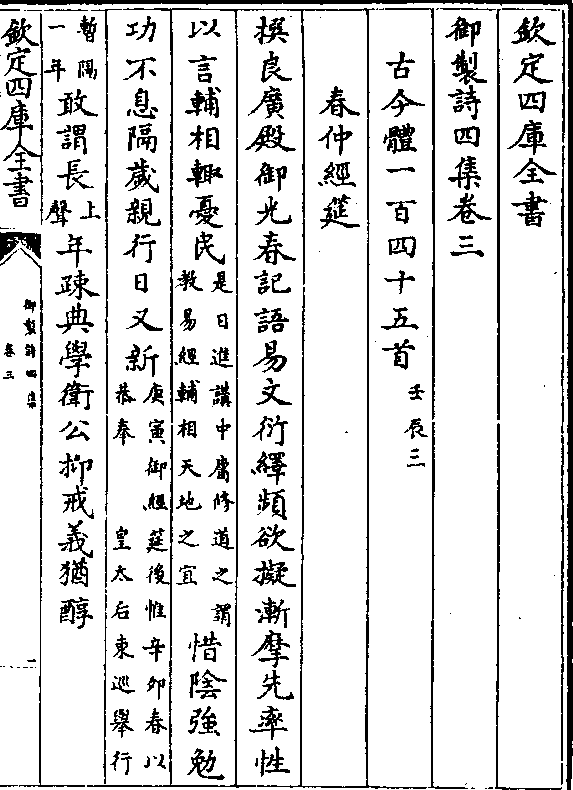 欽定四庫全書
御製詩四集卷三
古今體一百四十五首壬辰三
春仲經筵
撰良廣殿御光春記語易文衍繹頻欲擬漸摩先率性
以言輔相輙憂民是日進講中庸修道之謂教易經輔相天地之宜惜陰強勉
功不息隔歲親行日又新庚寅御經筵後惟辛卯春以恭奉 皇太后東巡舉行
暫隔一年敢謂長上聲年疎典學衛公抑戒義猶醇
欽定四庫全書
御製詩四集
卷三
一